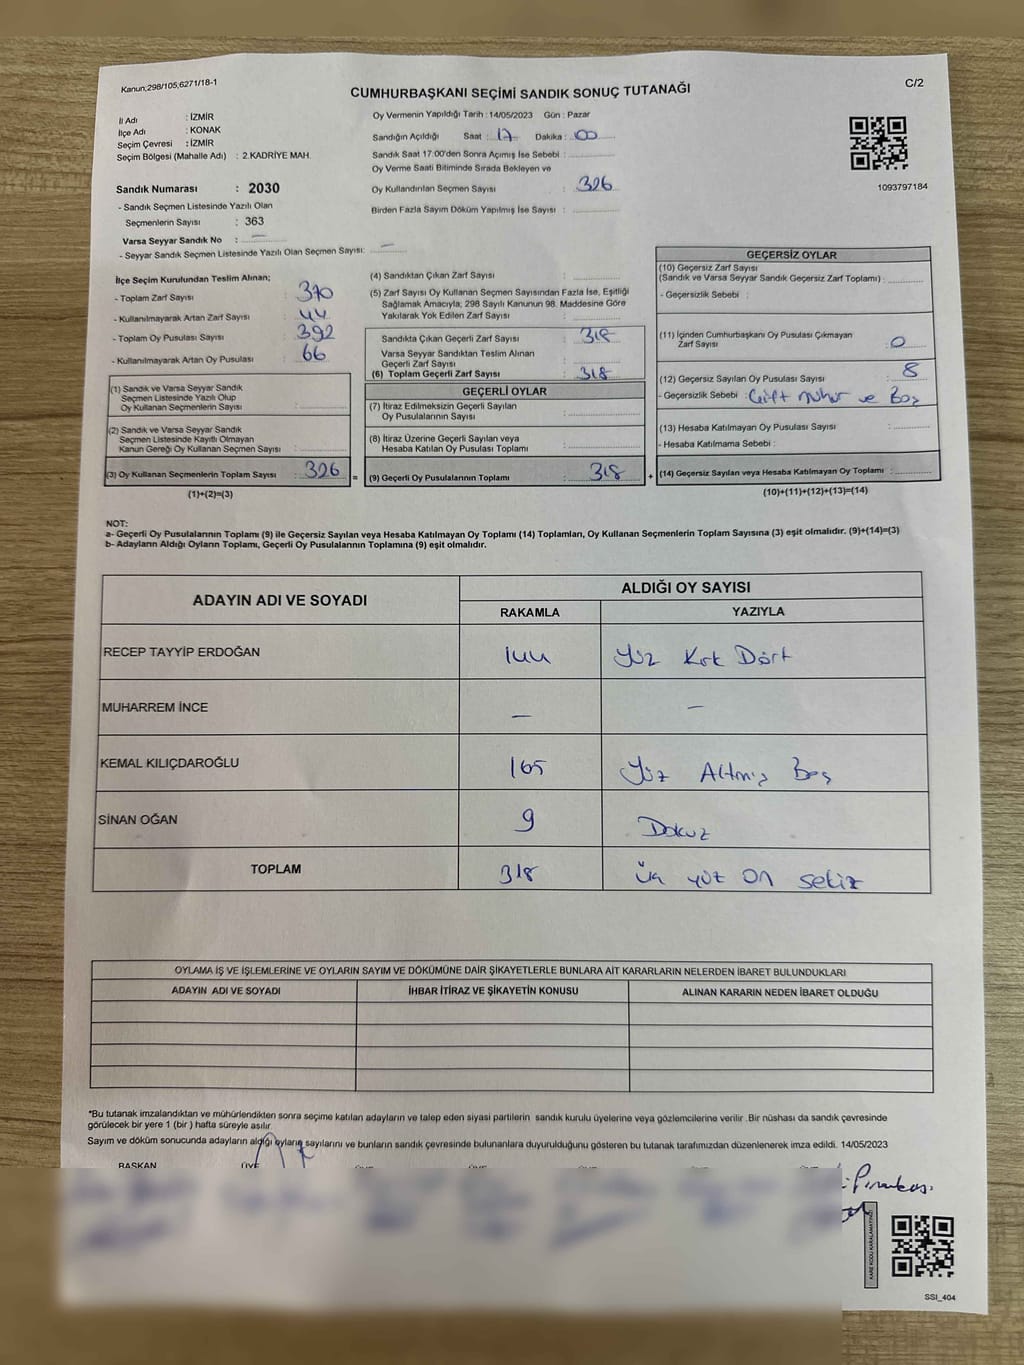 Kanun;298/105;6271/18-1
CUMHURBAŞKANI SEÇİMİ SANDIK SONUÇ TUTANAĞI
C/2
İl Adı : İZMİR
İlçe Adı : KONAK
Seçim Çevresi : İZMİR
Seçim Bölgesi (Mahalle Adı) : 2.KADRİYE MAH.
Sandık Numarası : 2030
- Sandık Seçmen Listesinde Yazılı Olan
Seçmenlerin Sayısı : 363
Varsa Seyyar Sandık No : —
- Seyyar Sandık Seçmen Listesinde Yazılı Olan Seçmen Sayısı: —
Oy Vermenin Yapıldığı Tarih : 14/05/2023 Gün : Pazar
Sandığın Açıldığı Saat : 17 Dakika : 00
Sandık Saat 17.00'den Sonra Açımış İse Sebebi :
Oy Verme Saati Bitiminde Sırada Bekleyen ve
Oy Kullandırılan Seçmen Sayısı : 326
Birden Fazla Sayım Döküm Yapılmış İse Sayısı :
1093797184
İlçe Seçim Kurulundan Teslim Alınan;
- Toplam Zarf Sayısı : 370
- Kullanılmayarak Artan Zarf Sayısı : 44
- Toplam Oy Pusulası Sayısı : 392
- Kullanılmayarak Artan Oy Pusulası : 66
(1) Sandık ve Varsa Seyyar Sandık
Seçmen Listesinde Yazılı Olup
Oy Kullanan Seçmenlerin Sayısı :
(2) Sandık ve Varsa Seyyar Sandık
Seçmen Listesinde Kayıtlı Olmayan
Kanun Gereği Oy Kullanan Seçmen Sayısı :
(3) Oy Kullanan Seçmenlerin Toplam Sayısı : 326
(1)+(2)=(3)
(4) Sandıktan Çıkan Zarf Sayısı :
(5) Zarf Sayısı Oy Kullanan Seçmen Sayısından Fazla İse, Eşitliği
Sağlamak Amacıyla; 298 Sayılı Kanunun 98. Maddesine Göre
Yakılarak Yok Edilen Zarf Sayısı :
Sandıkta Çıkan Geçerli Zarf Sayısı : 318
Varsa Seyyar Sandıktan Teslim Alınan
Geçerli Zarf Sayısı :
(6) Toplam Geçerli Zarf Sayısı : 318
GEÇERLİ OYLAR
(7) İtiraz Edilmeksizin Geçerli Sayılan
Oy Pusulalarının Sayısı :
(8) İtiraz Üzerine Geçerli Sayılan veya
Hesaba Katılan Oy Pusulası Toplamı :
= (9) Geçerli Oy Pusulalarının Toplamı : 318 +
GEÇERSİZ OYLAR
(10) Geçersiz Zarf Sayısı
(Sandık ve Varsa Seyyar Sandık Geçersiz Zarf Toplamı) :
- Geçersizlik Sebebi :
(11) İçinden Cumhurbaşkanı Oy Pusulası Çıkmayan
Zarf Sayısı : 0
(12) Geçersiz Sayılan Oy Pusulası Sayısı : 8
- Geçersizlik Sebebi : Çift mühür ve Boş
(13) Hesaba Katılmayan Oy Pusulası Sayısı :
- Hesaba Katılmama Sebebi :
(14) Geçersiz Sayılan veya Hesaba Katılmayan Oy Toplamı :
(10)+(11)+(12)+(13)=(14)
NOT:
a- Geçerli Oy Pusulalarının Toplamı (9) ile Geçersiz Sayılan veya Hesaba Katılmayan Oy Toplamı (14) Toplamları, Oy Kullanan Seçmenlerin Toplam Sayısına (3) eşit olmalıdır. (9)+(14)=(3)
b- Adayların Aldığı Oyların Toplamı, Geçerli Oy Pusulalarının Toplamına (9) eşit olmalıdır.
ADAYIN ADI VE SOYADI
ALDIĞI OY SAYISI
RAKAMLA YAZIYLA
RECEP TAYYİP ERDOĞAN 144 Yüz Kırk Dört
MUHARREM İNCE — —
KEMAL KILIÇDAROĞLU 165 Yüz Altmış Beş
SİNAN OĞAN 9 Dokuz
TOPLAM 318 Üç yüz on sekiz
OYLAMA İŞ VE İŞLEMLERİNE VE OYLARIN SAYIM VE DÖKÜMÜNE DAİR ŞİKAYETLERLE BUNLARA AİT KARARLARIN NELERDEN İBARET BULUNDUKLARI
ADAYIN ADI VE SOYADI İHBAR İTİRAZ VE ŞİKAYETİN KONUSU ALINAN KARARIN NEDEN İBARET OLDUĞU
*Bu tutanak imzalandıktan ve mühürlendikten sonra seçime katılan adayların ve talep eden siyasi partilerin sandık kurulu üyelerine veya gözlemcilerine verilir .Bir nüshası da sandık çevresinde
görülecek bir yere 1 (bir ) hafta süreyle asılır.
Sayım ve döküm sonucunda adayların aldığı oyların sayılarını ve bunların sandık çevresinde bulunanlara duyurulduğunu gösteren bu tutanak tarafımızdan düzenlenerek imza edildi. 14/05/2023
BAŞKAN ÜYE
KARE KODU KARALAMAYINIZ
SSI_404